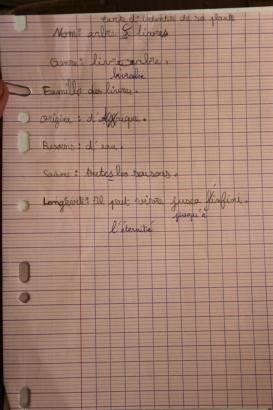 Carte d'identité de sa plante
Nom: arbre à livres
Genre: livre arbre.
livrabre
Famille: des livres.
Origine: d'Afrique.
Besoins: d'eau.
Saison: toutes les saisons.
Longévité: Il peut vivre jusca l'infini.
jusqu'à
l'éternité